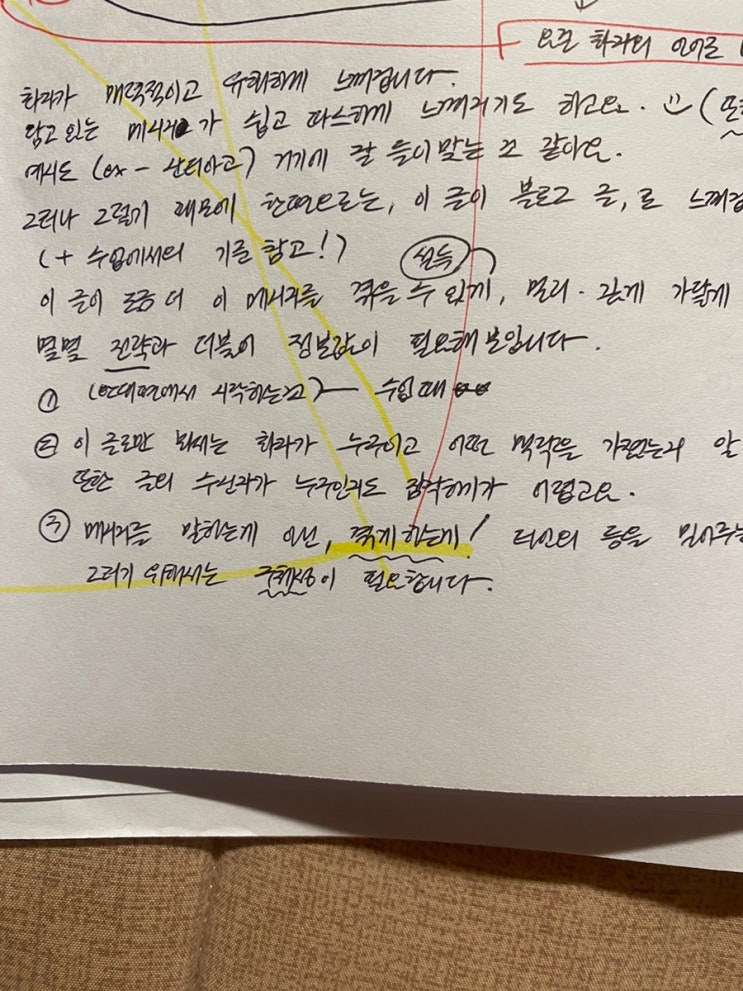 요즘 화자의 언어로
화자가 매력적이고 유쾌하게 느껴집니다.
담고 있는 메시지가 쉽고 따스하게 느껴지기도 하고요. (또한
예시도 (ex - 산티아고) 거기에 잘 들어맞는 것 같아요.
그러나 그렇기 때문에 한편으로는, 이 글이 블로그 글, 로 느껴집
(+ 수업에서의 기준 참고!)
설득
이 글이 조금 더 이 메시지를 겪을 수 있게, 멀리·깊게 가닿게
몇몇 전략과 더불어 정보값이 필요해 보입니다.
① (반대편에서 시작하는 것) — 수업 때
② 이 글로만 봐서는 화자가 누구이고 어떤 맥락을 가졌는지 알
또한 글의 수신자가 누구인지도 짐작하기가 어렵고요.
③ 메시지를 말하는게 아닌, 겪게 하는게! 타인의 등을 밀어주는
그러기 위해서는 구체성이 필요합니다.